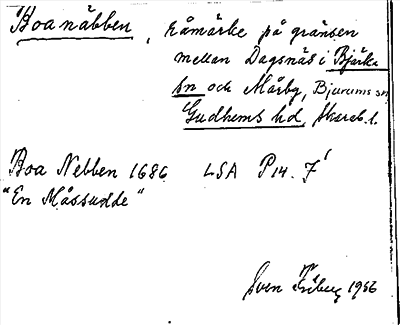 Boanäbben, råmärke på gränsen
mellan Dagsnäs i Bjärka
sn och Mårby, Bjurums sn,
Gudhems hd, Skarab. l.
Boa Nebben 1686 LSA P14. 7¹
"En Måssudde"
Sven Friberg 1956